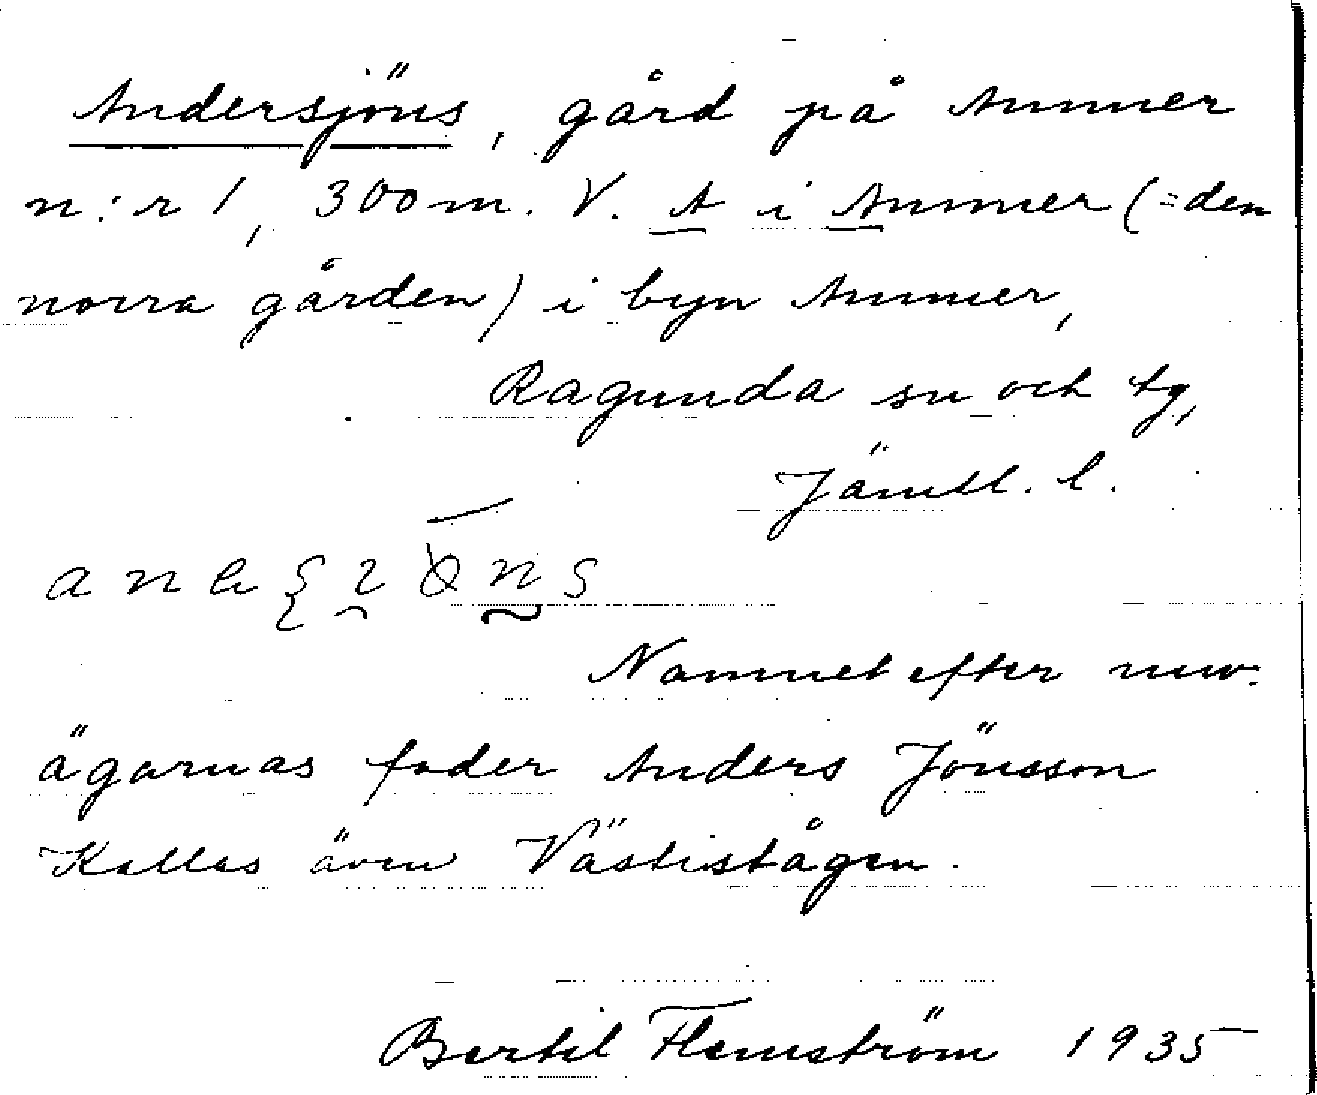 Andersjöns, gård på Ammer
n:r 1, 300 m. V. A i Ammer (=den
norra gården) i byn Ammer,
Ragunda sn och tg,
Jämtl. l.
Namnet efter nuv.
ägarnas fader Anders Jönsson
Kallas även Västistågen.
Bertil Flemström 1935